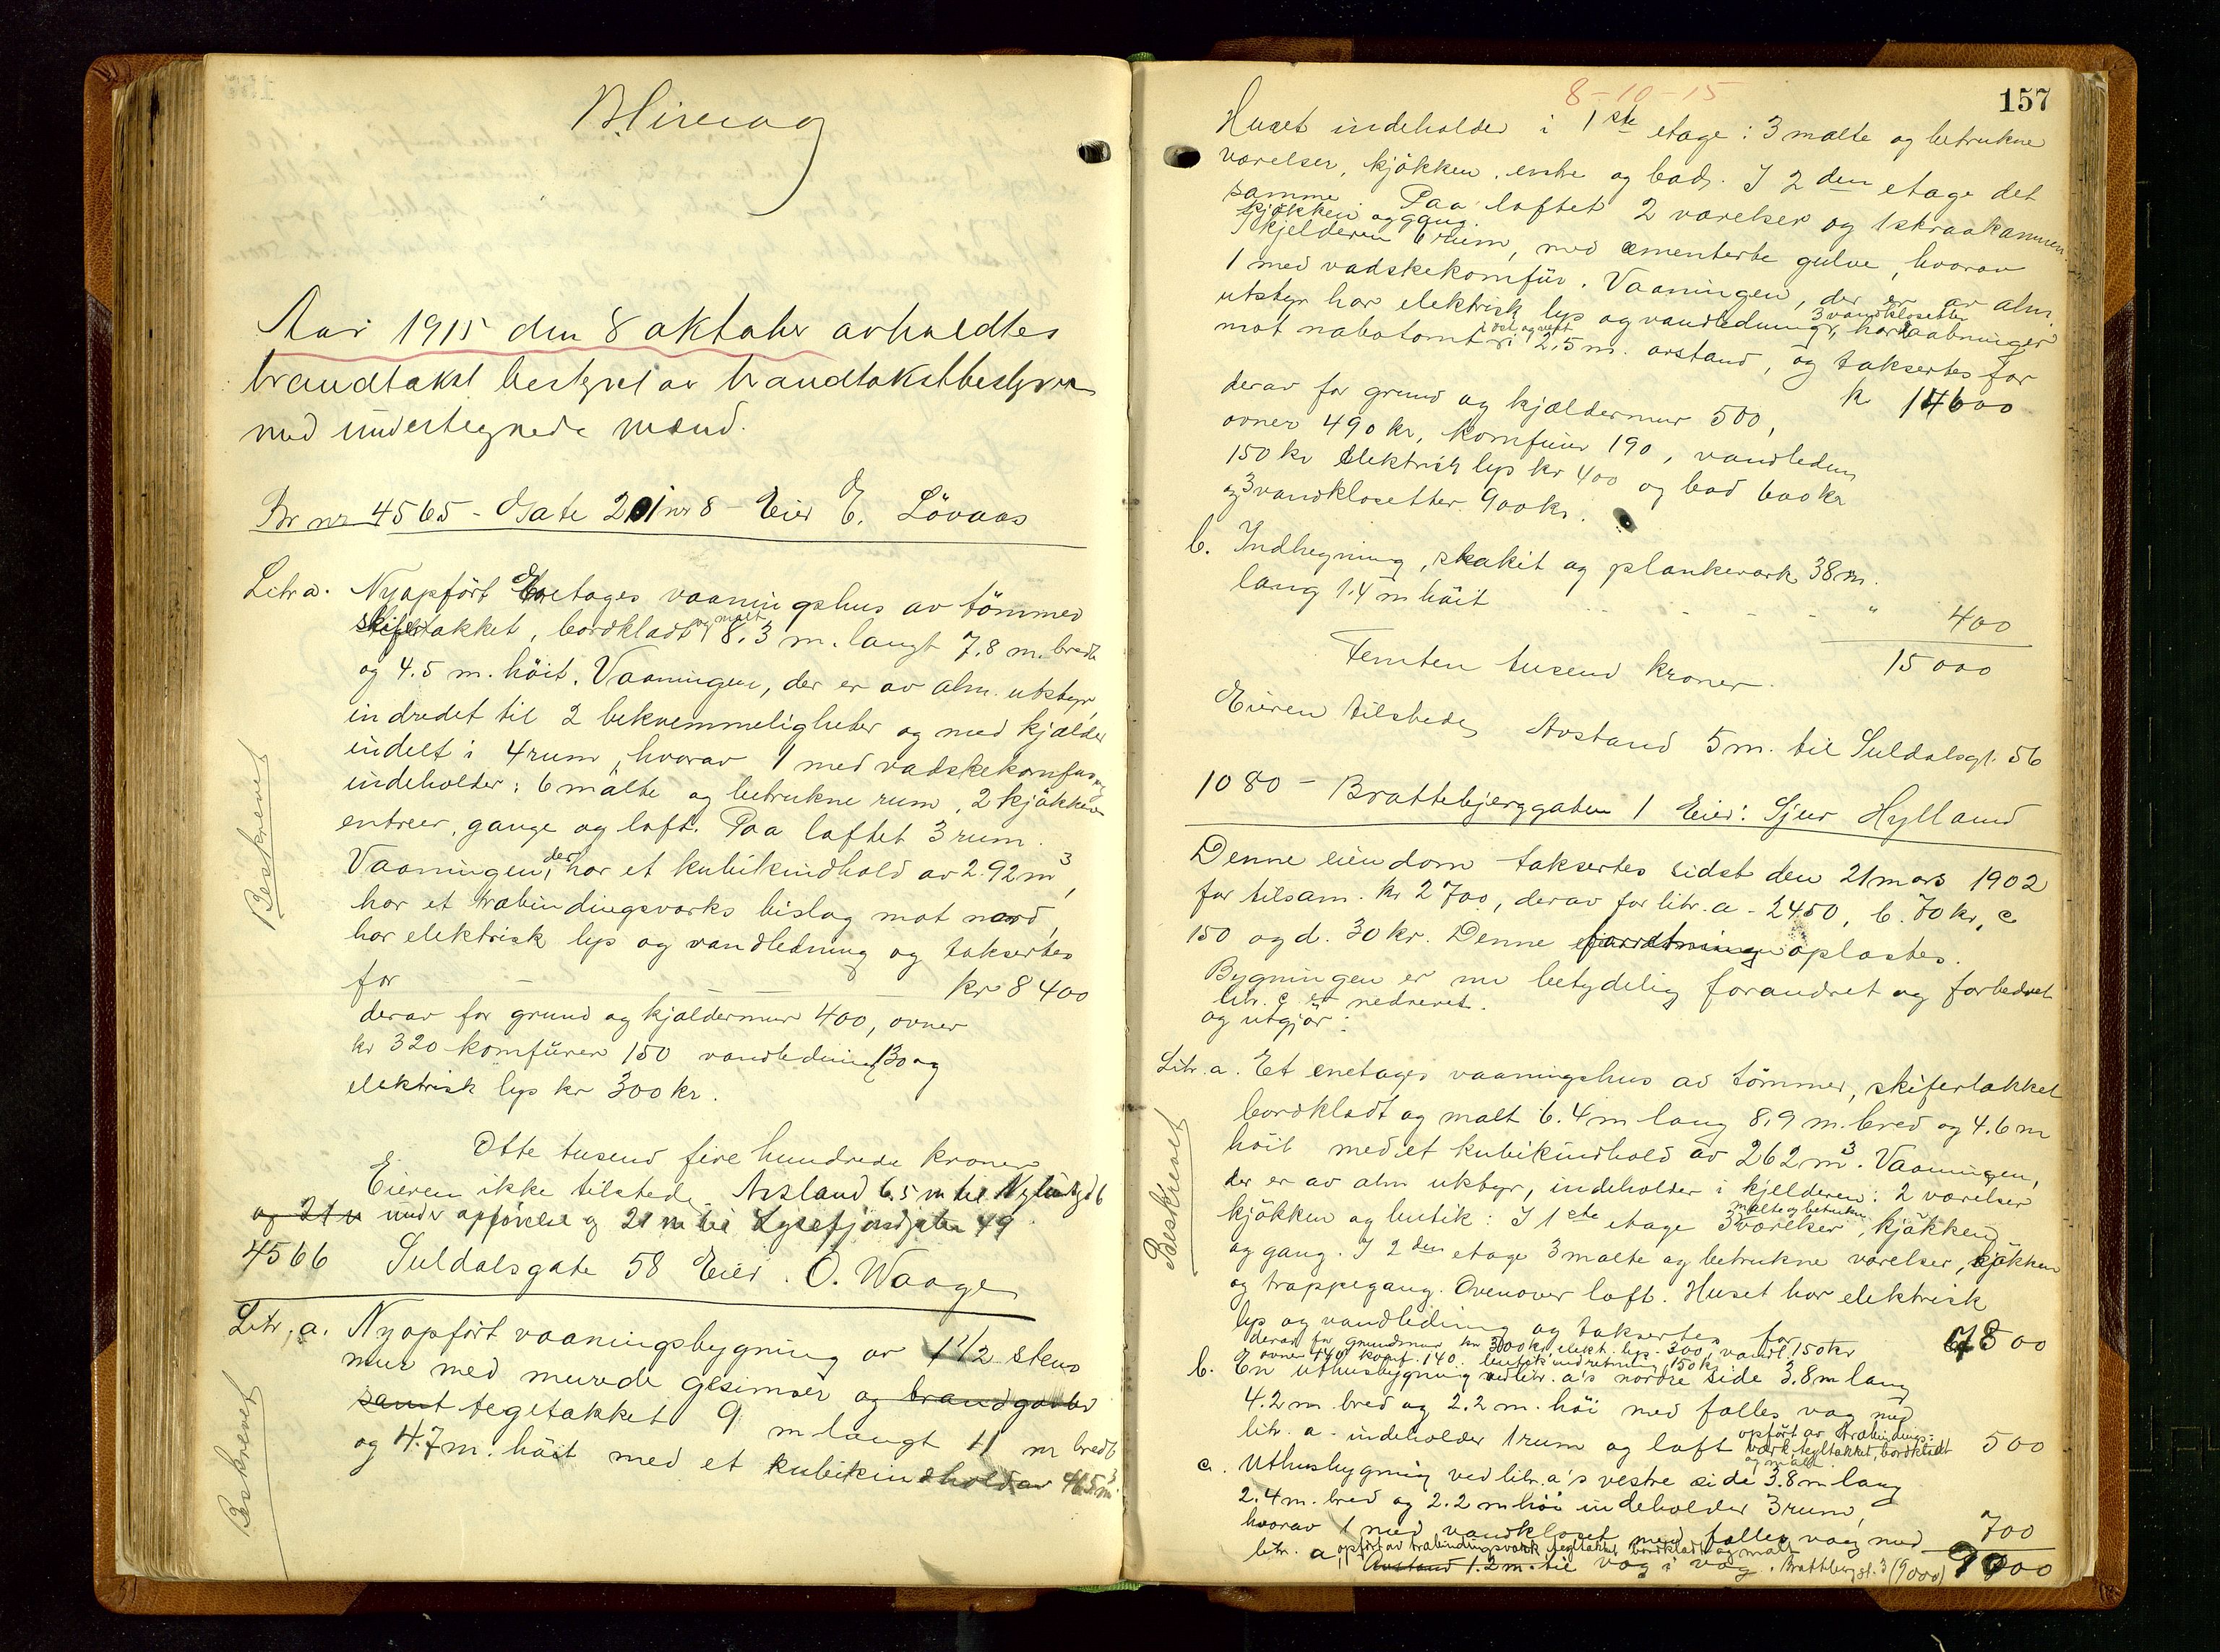 Aar 1915 den 8 oktober avholdtes
brandtakst bestyret av brandtakstbestyreren
med undertegnede mænd.
Br nr 4565 - Gate 201 nr 8 - Eier E. Lövaas
Litr a. Nyopfört Enetages vaaningshus av tömmer
skifertakket, bordklædt og malt 8.3 m. langt 7.8 m. bredt
og 4.5 m. höit. Vaaningen, der er av alm. utstyr,
indredet til 2 bekvemmeligheter og med kjælder
indelt i 4 rum, hvorav 1 med vadskekomfur og
indeholder: 6 malte og betrukne rum, 2 kjökkener
entreer, gange og loft. Paa loftet 3 rum.
Vaaningen, der har et kubikindhold av 292 m3,
har et træbindingsverks bislag mot nord,
har elektrisk lys og vandledning og taksertes
for — — — — kr 8400
derav for grund og kjældermur 400, ovner
kr 320 komfürer 150 vandledning 130 og
elektrisk lys kr 300 kr.
Beskrevet
Otte tusend fire hundrede kroner
Eieren ikke tilstede. Avstand 6.5 m til
og 21 m under opförelse og 21 m til Lysefjordgaten 49
4566 Suldalsgate 58 Eier. O. Waage
Litr. a. Nyopfört vaaningsbygning av 1 1/2 stens
mur med murede gesimser og brandgavler
samt tegltakket 9 m langt 11 m bredt
og 4.7 m. höit med et kubikindhold av 465 m3.
Beskrevet
8-10-15
157
Huset indeholder i 1ste etage: 3 malte og betrukne
værelser, kjökken, entre og bad. I 2den etage det
samme Paa loftet 2 værelser og 1 skraakammer
kjökken og gang.
I kjelderen 6 rum, med cementerte gulve, hvorav
1 med vadskekomfür. Vaaningen, der er av alm.
utstyr har elektrisk lys og vandledning, 3 vandklosetter har aabninger
mot nabotomt i öst og vest i 2,5 m. avstand, og taksertes for
k 14600
derav for grund og kjældermur 500,
ovner 490 kr, komfuur 190, vandledn
150 kr elektrisk lys kr 400 og bad 600 kr
og 3 vandklosetter 900 kr.
b. Indhegning, stakit og plankeverk 38 m.
lang 1.4 m höit - - - - " 400
15000
Femten tusend kroner.
Eieren tilstede, Avstand 5 m. til Suldalsgt. 56
1080 - Brattebjerggaten 1 Eier: Sjur Hylland
Denne eiendom taksertes sidst den 21 mars 1902
for tilsam. kr 2700, derav for litr. a - 2450, b. 70 kr, c
150 og d. 30 kr. Denne forretning oplæstes.
Bygningen er nu betydelig forandret og forbedret
litr. c er nedrevet.
og utgjör:
Litr. a. Et enetages vaaningshus av tömmer, skifertakket
bordklædt og malt 6.4 m lang 8,9 m. bred og 4.6 m
höit med et kubikindhold av 262 m3. Vaaningen,
der er av alm utstyr, indeholder i kjelderen: 2 værelser
kjökken og butik: I 1ste etage 3 malte og betrukne værelser, kjökken
og gang. I 2den etage 3 malte og betrukne værelser, kjökken
og trappegang. Ovenover loft. Huset har elektrisk
lys og vandledning og taksertes for 7800
derav for grundmur kr 300 kr, elekt. lys 300, vandl. 150 kr
ovner 140 komf. 140. butikindretning 150 kr
Beskrevet
b. En uthusbygning ved litr. a's nordre side 3.8 m lang
4.2 m. bred og 2.2 m. höi med fælles væg med
litr. a - indeholder 1 rum og loft opfört av træbindings-
værk tegltakket, bordklædt og malt 500
c. Uthusbygning ved litr. a's vestre side 3.8 m lang
2.4 m. bred og 2.2 m höi indeholder 3 rum,
hvorav 1 med vandkloset med fælles væg med 700
litr. a, opfört av træbindingsværk tegltakket bordklædt og malt
Avstand 1.2 m. til væg i væg. Brattebergst. 3 (9000) 9000